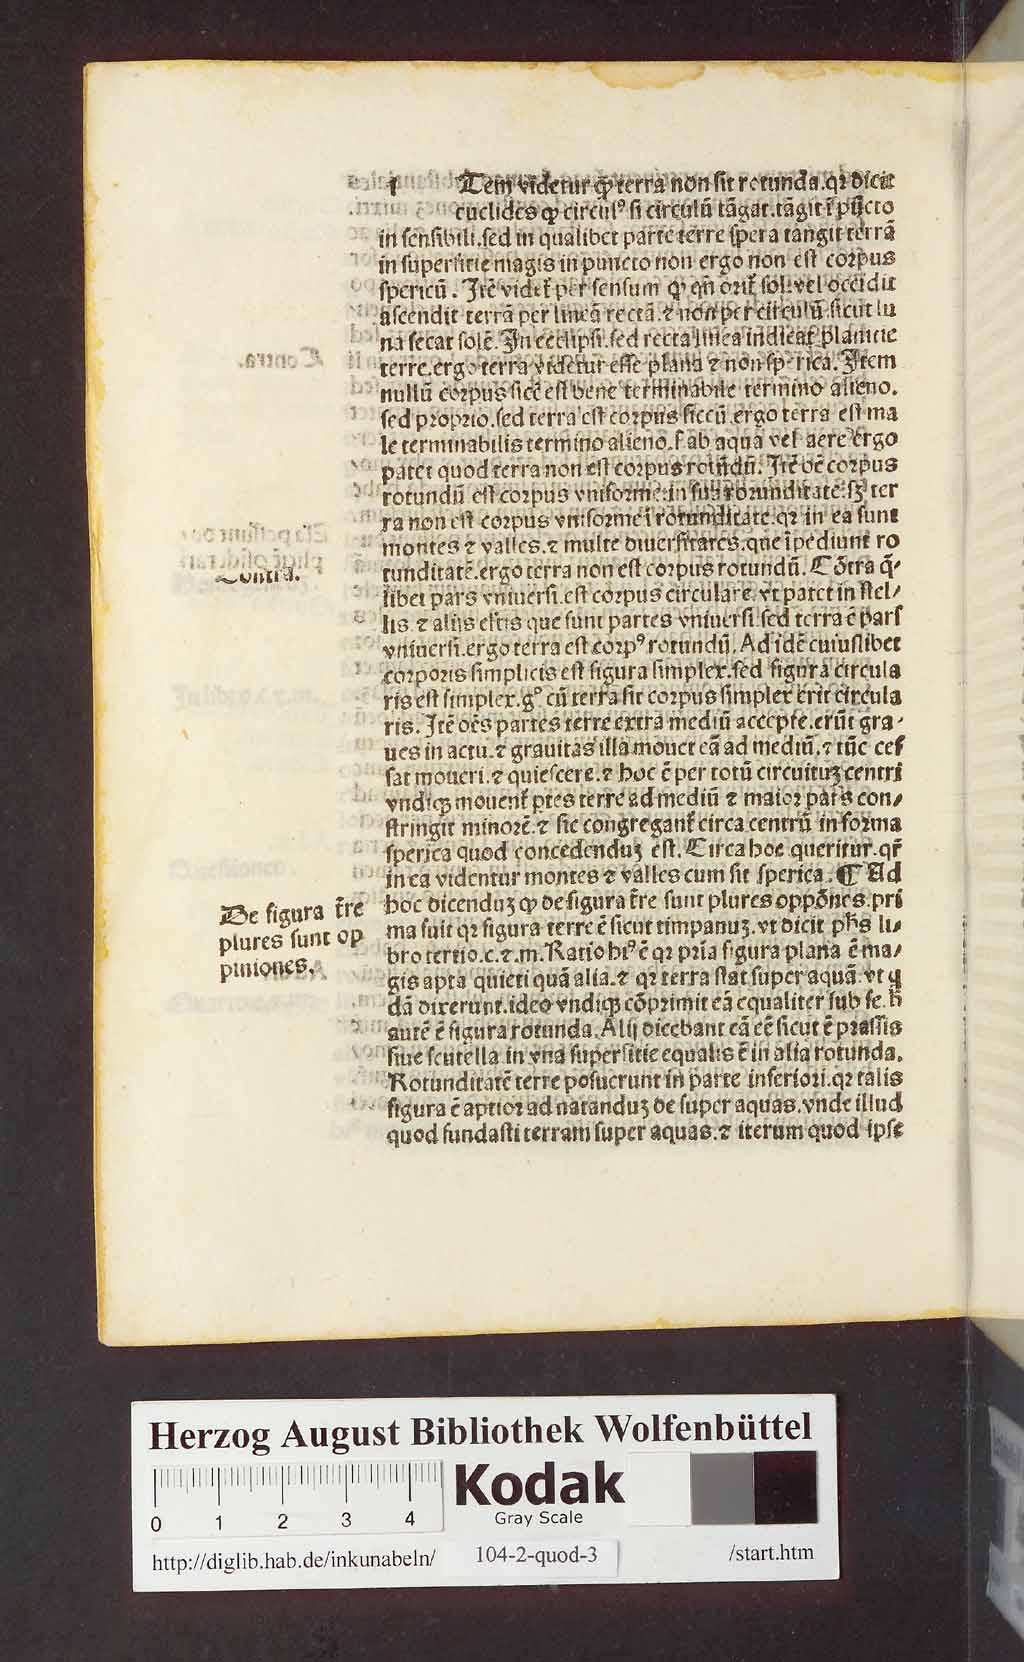 i Tem videtur ꝙ terra non sit rotunda. qꝛ dicit
euclides ꝙ circulꝰ si circulū tāgat. tāgit ī pūcto
in sensibili. sed in qualibet parte terre spera tangit terrā
in superficie magis in puncto non ergo non est corpus
spericū. Itē videt̄ per sensum ꝙ qn̄ orit̄ sol. vel occidit
ascendit terrā per lineā rectā. ⁊ non per circulū sicut lu
na secat solē. In eclipsi. sed recta linea indicat planitie
terre. ergo terra videtur esse plana ⁊ non sperica. Item
nullū corpus siccū est bene terminabile termino alieno.
sed proprio. sed terra est corpus siccū. ergo terra est ma
le terminabilis termino alieno. s ab aqua vel aere ergo
patet quod terra non est corpus rotūdū. Itē oē corpus
rotundū est corpus vniforme. in sua rotunditate. sꝫ ter
ra non est corpus vniforme ī rotunditate. qꝛ in ea sunt
montes ⁊ valles. ⁊ multe diuersitates. que īpediunt ro
tunditatē. ergo terra non est corpus rotundū. Cōtra q̄⸗
libet pars vniuersi. est corpus circulare. vt patet in stel⸗
lis. ⁊ alijs estis que sunt partes vniuersi. sed terra ē pars
vniuersi. ergo terra est corpꝰ rotundū. Ad idē cuiuslibet
corporis simplicis est figura simplex. sed figura circula
ris est simplex. gͦ cū terra sit corpus simplex erit circula
ris. Itē oēs partes terre extra mediū accepte. erūt gra⸗
ues in actu. ⁊ grauitas illa mouet eā ad mediū. ⁊ tūc ces
sat moueri. ⁊ quiescere. ⁊ hoc ē per totū circuituꝫ centri
vndiqꝫ mouent̄ ꝑtes terre ad mediū ⁊ maior pars con⸗
stringit minorē. ⁊ sic congregant̄ circa centrū in forma
sperica quod concedenduꝫ est. Circa hoc queritur. qr̄
in ea videntur montes ⁊ valles cum sit sperica. ¶ Ad
hoc dicenduꝫ ꝙ de figura t̄re sunt plures oppōnes. pri
ma fuit qꝛ figura terre ē sicut timpanuꝫ. vt dicit ph̄s li⸗
bro tertio. c. ⁊. m. Ratio hiꝰ ē qꝛ pria figura plana ē ma⸗
gis apta quieti quā alia. ⁊ qꝛ terra stat super aquā. vt q̄
dā dixerunt. ideo vndiqꝫ cōprimit eā equaliter sub se. h̄
autē ē figura rotunda. Alij dicebant eā eē sicut ē prassis
siue scutella in vna superficie equalis ē in alia rotunda.
Rotunditatē terre posuerunt in parte inferiori. qꝛ talis
figura ē aptior ad natanduꝫ de super aquas. vnde illud
quod fundasti terram super aquas. ⁊ iterum quod ipse
Contra.
De figura t̄re
plures sunt op
piniones.
Herzog August Bibliothek Wolfenbüttel
0 1 2 3 4
Kodak
Gray Scale
http://diglib.hab.de/inkunabeln/ 104-2-quod-3 /start.htm